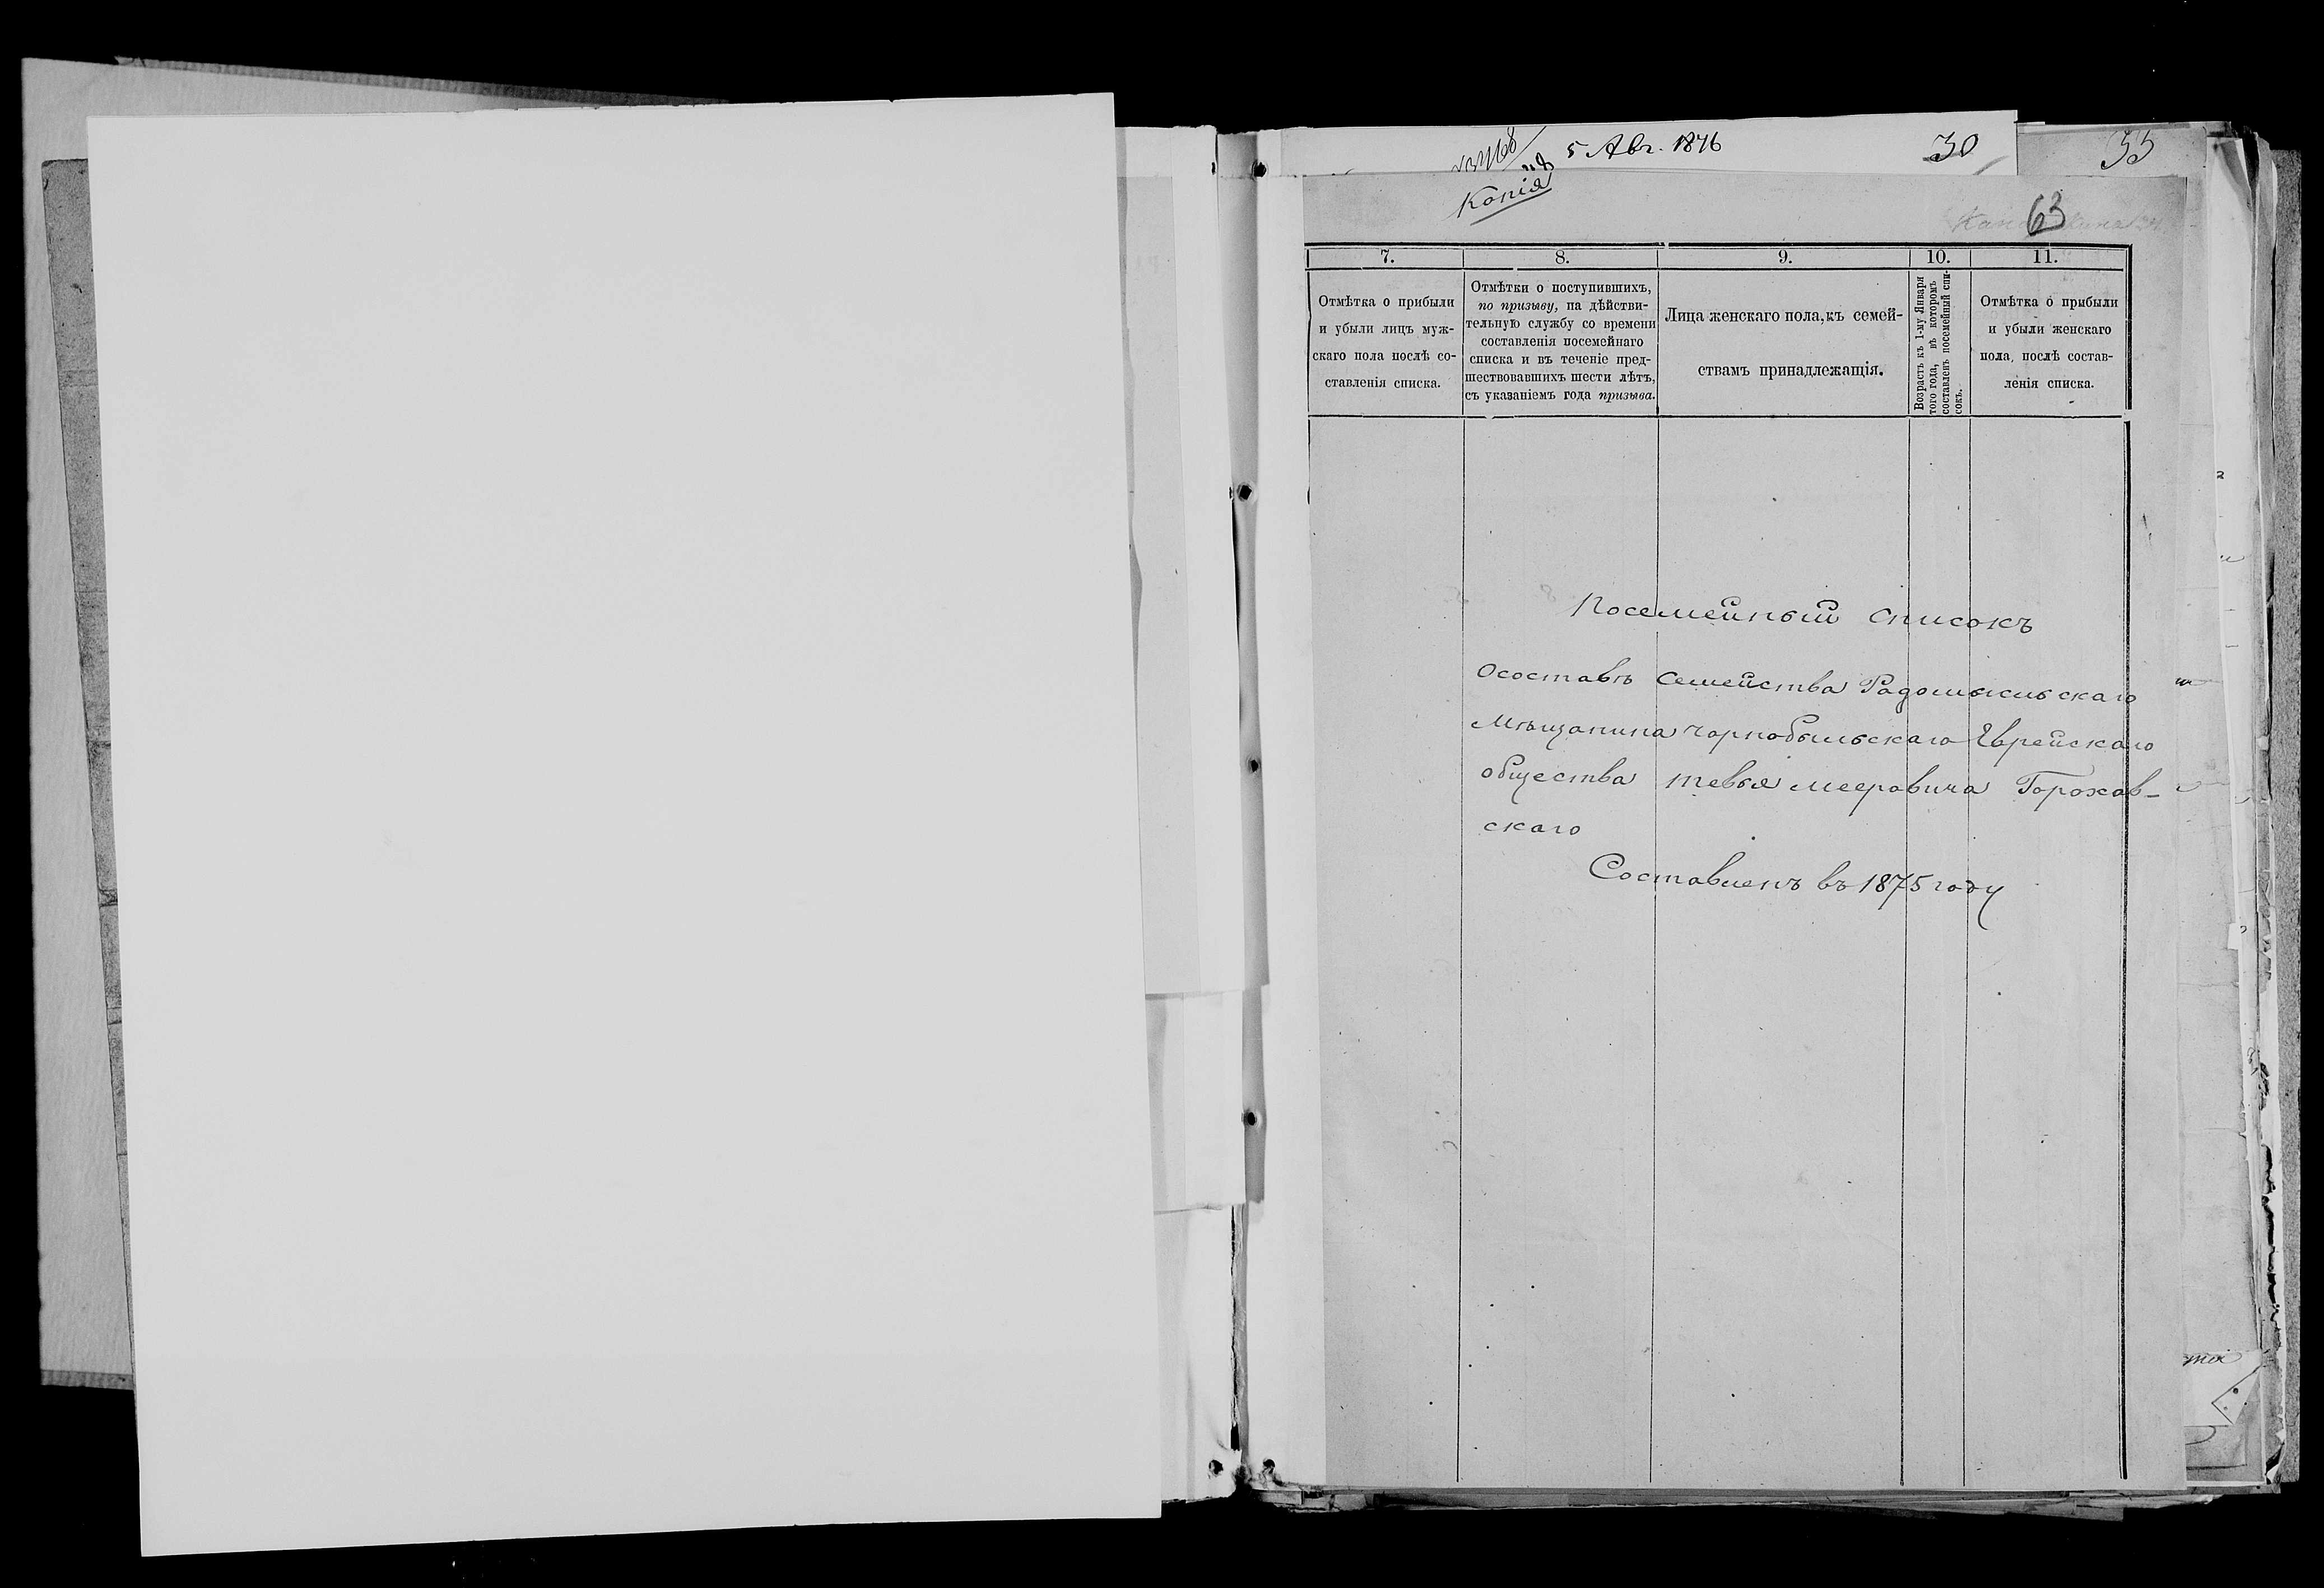 5 Авг. 1876
30
35
Копія
63
7.
8.
9.
10.
11.
Отмѣтка о прибыли
и убыли лицъ муж-
скаго пола послѣ со-
ставленія списка.
Отмѣтки о поступившихъ,
по призыву, на дѣйстви-
тельную службу со времени
составленія посемейнаго
списка и въ теченіе пред-
шествовавшихъ шести лѣтъ,
съ указаніемъ года призыва.
Лица женскаго пола, къ семей-
ствамъ принадлежащія.
Возрастъ къ 1-му Января
того года, въ которомъ
составленъ посемейный спи-
сокъ.
Отмѣтка о прибыли
и убыли женскаго
пола, послѣ состав-
ленія списка.
Посемейный списокъ
осоставѣ семейства Радомысльскаго
Мѣщанина чорнобыльскаго Еврейскаго
общества тевья мееровича Горохав-
скаго
Составленъ въ 1875 году